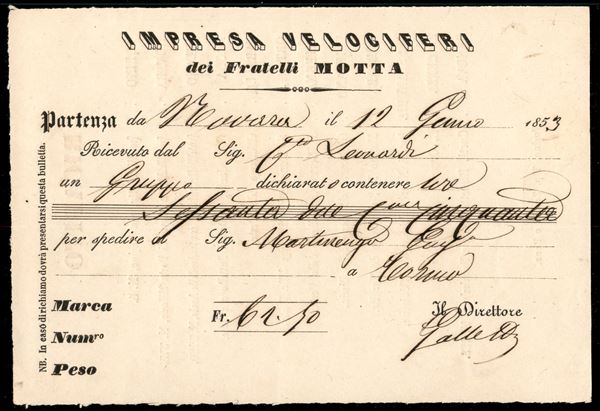 IMPRESA VELOCIFERI
dei Fratelli MOTTA
Partenza da Novara il 12 Giugno 1853
Ricevuto dal Sig. Leonardi
un Gruppo dichiarato contenere lire
Sessanta due Cmi Cinquanta
per spedire al Sig. Martinengo
a Torino
Marca
Numro
Peso
Fr. 62.50
Il Direttore
NB. In caso di richiamo dovrà presentarsi questa bulletta.